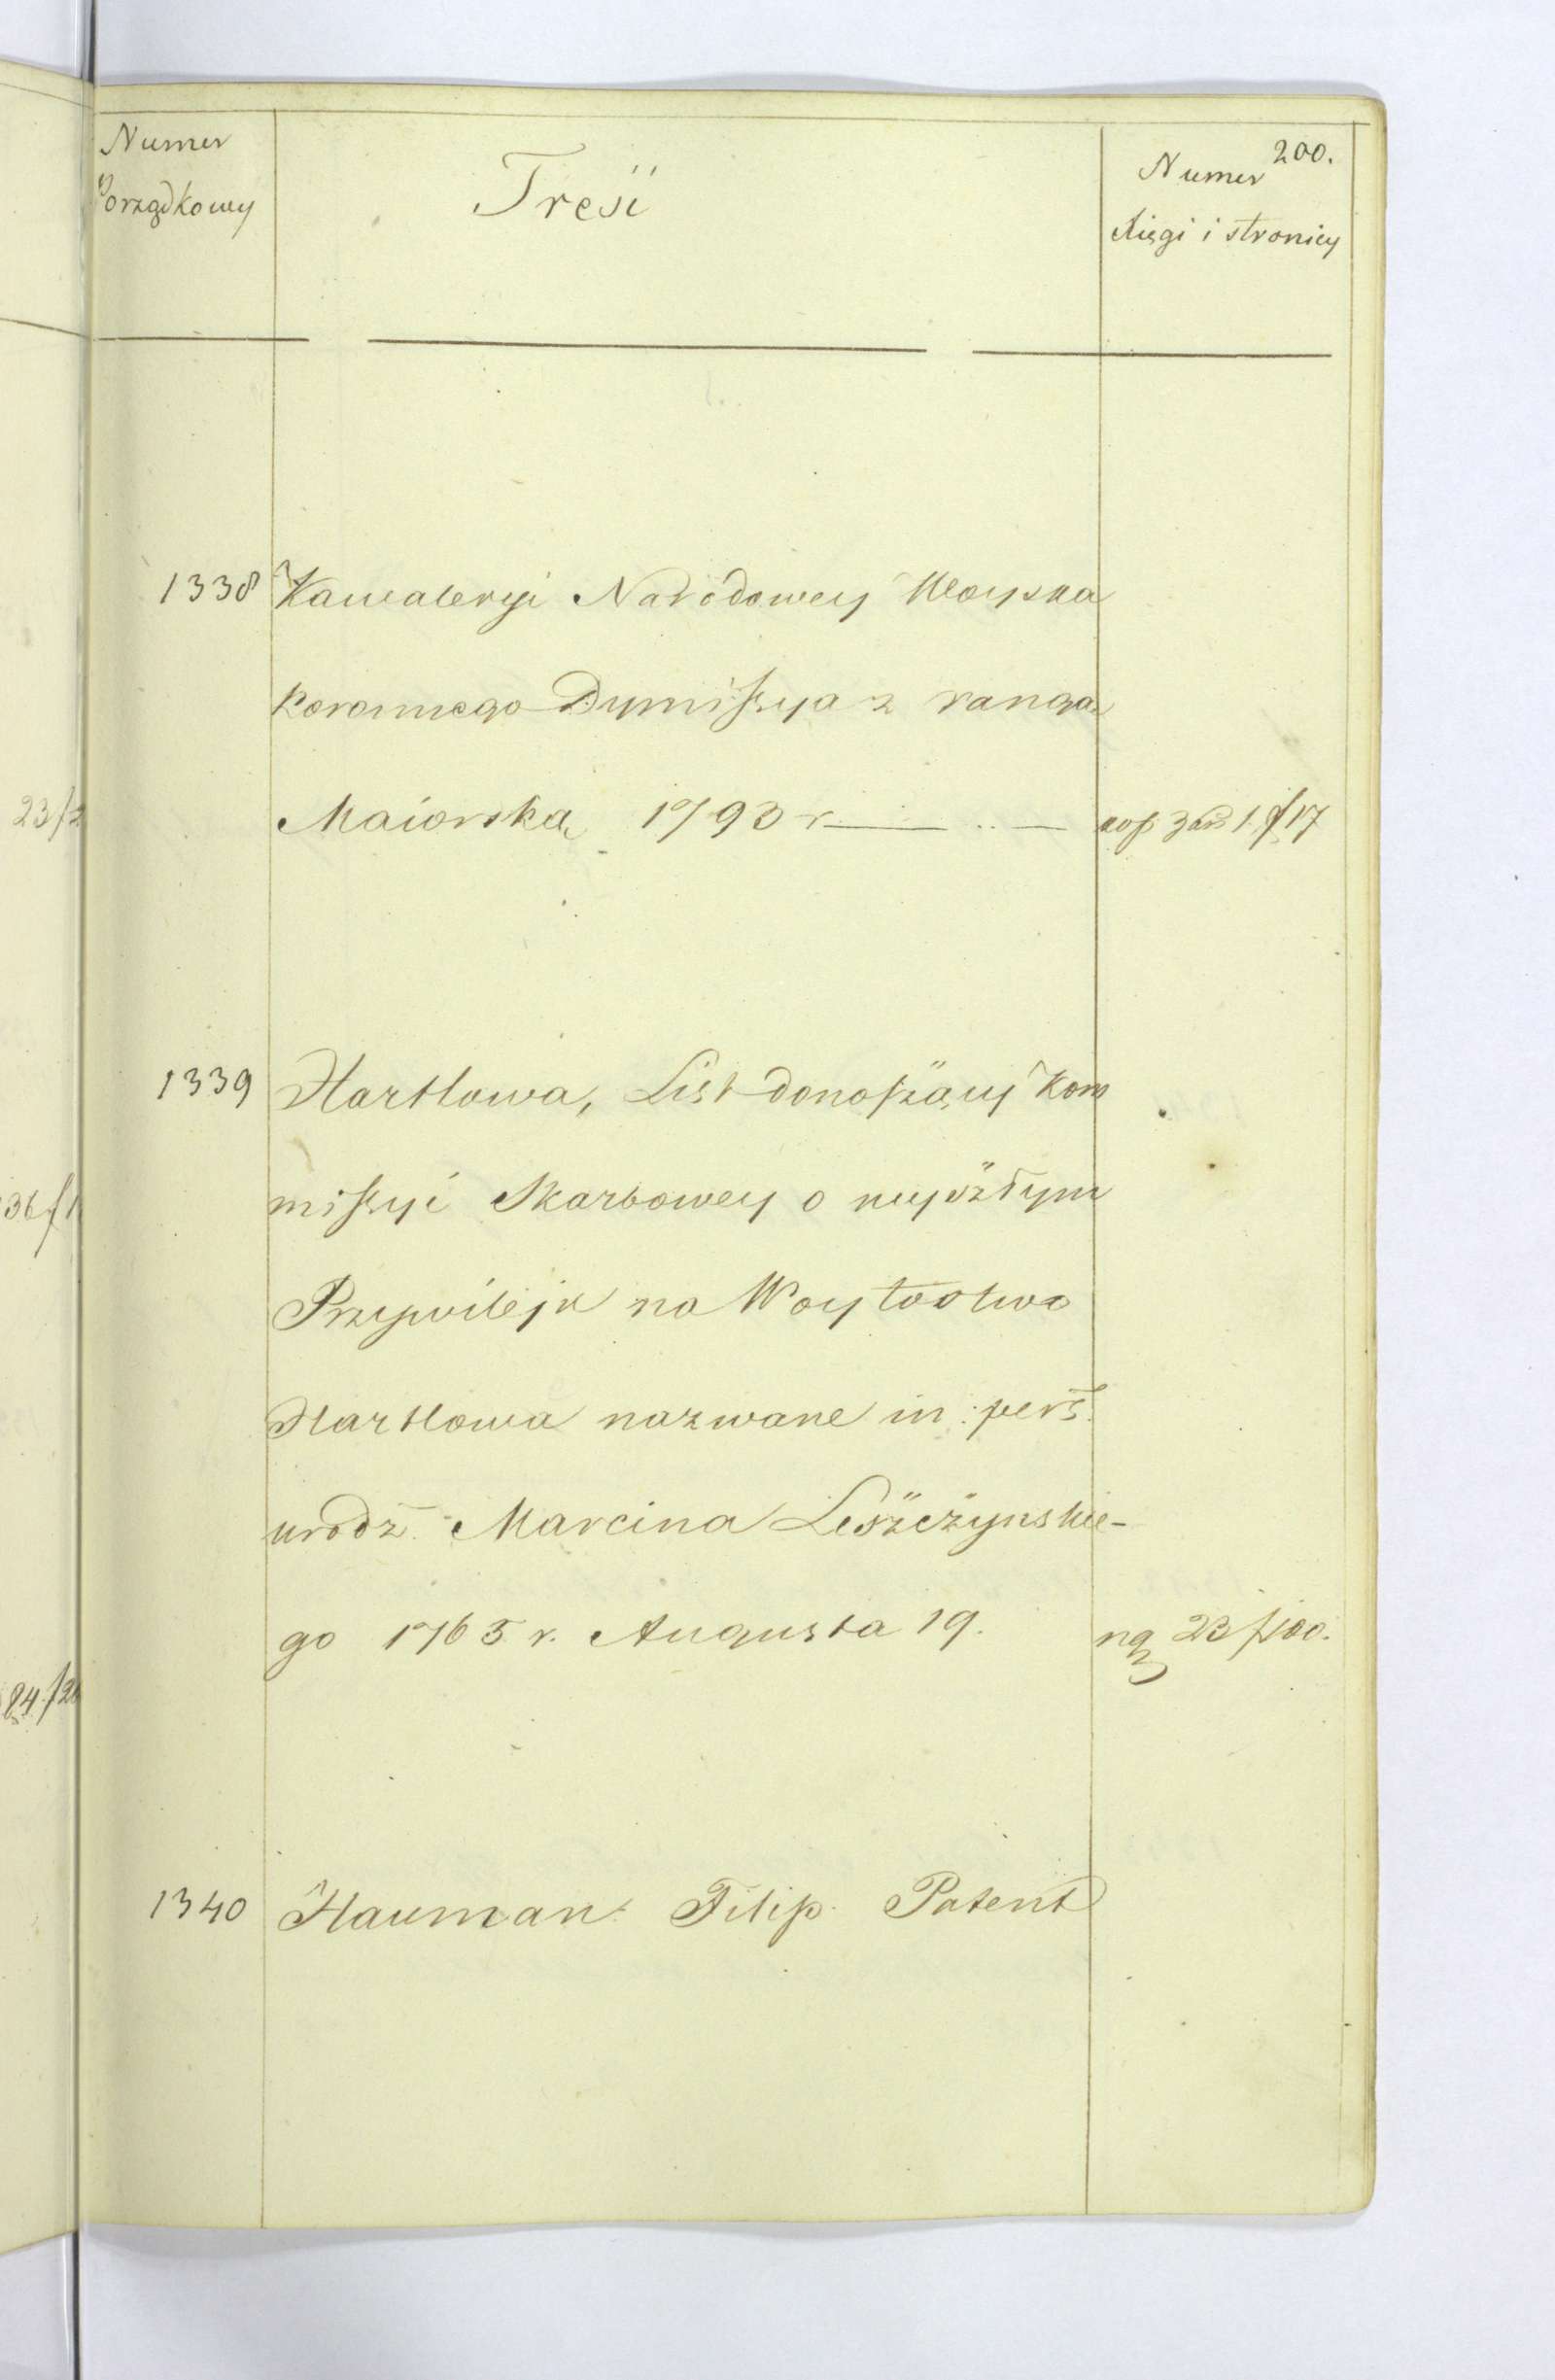 200.
Numer
Porządkowy
Treść
Numer
Xięgi i stronicy
1338 Kawaleryi Narodowey Woyska
koronnego Dymissya z rangą
Maiorską 1793 r
1339 Hartlowa, List donoszący Kom
missyi Skarbowey o wyszłym
Przywileju na Woytostwo
Hartlowa nazwane in pers.
urodz. Marcina Leszczynskie-
go 1765 r. Augusta 19. 23 f 100.
1340 Hauman Filip Patent
23/2
36 f 1
84/2